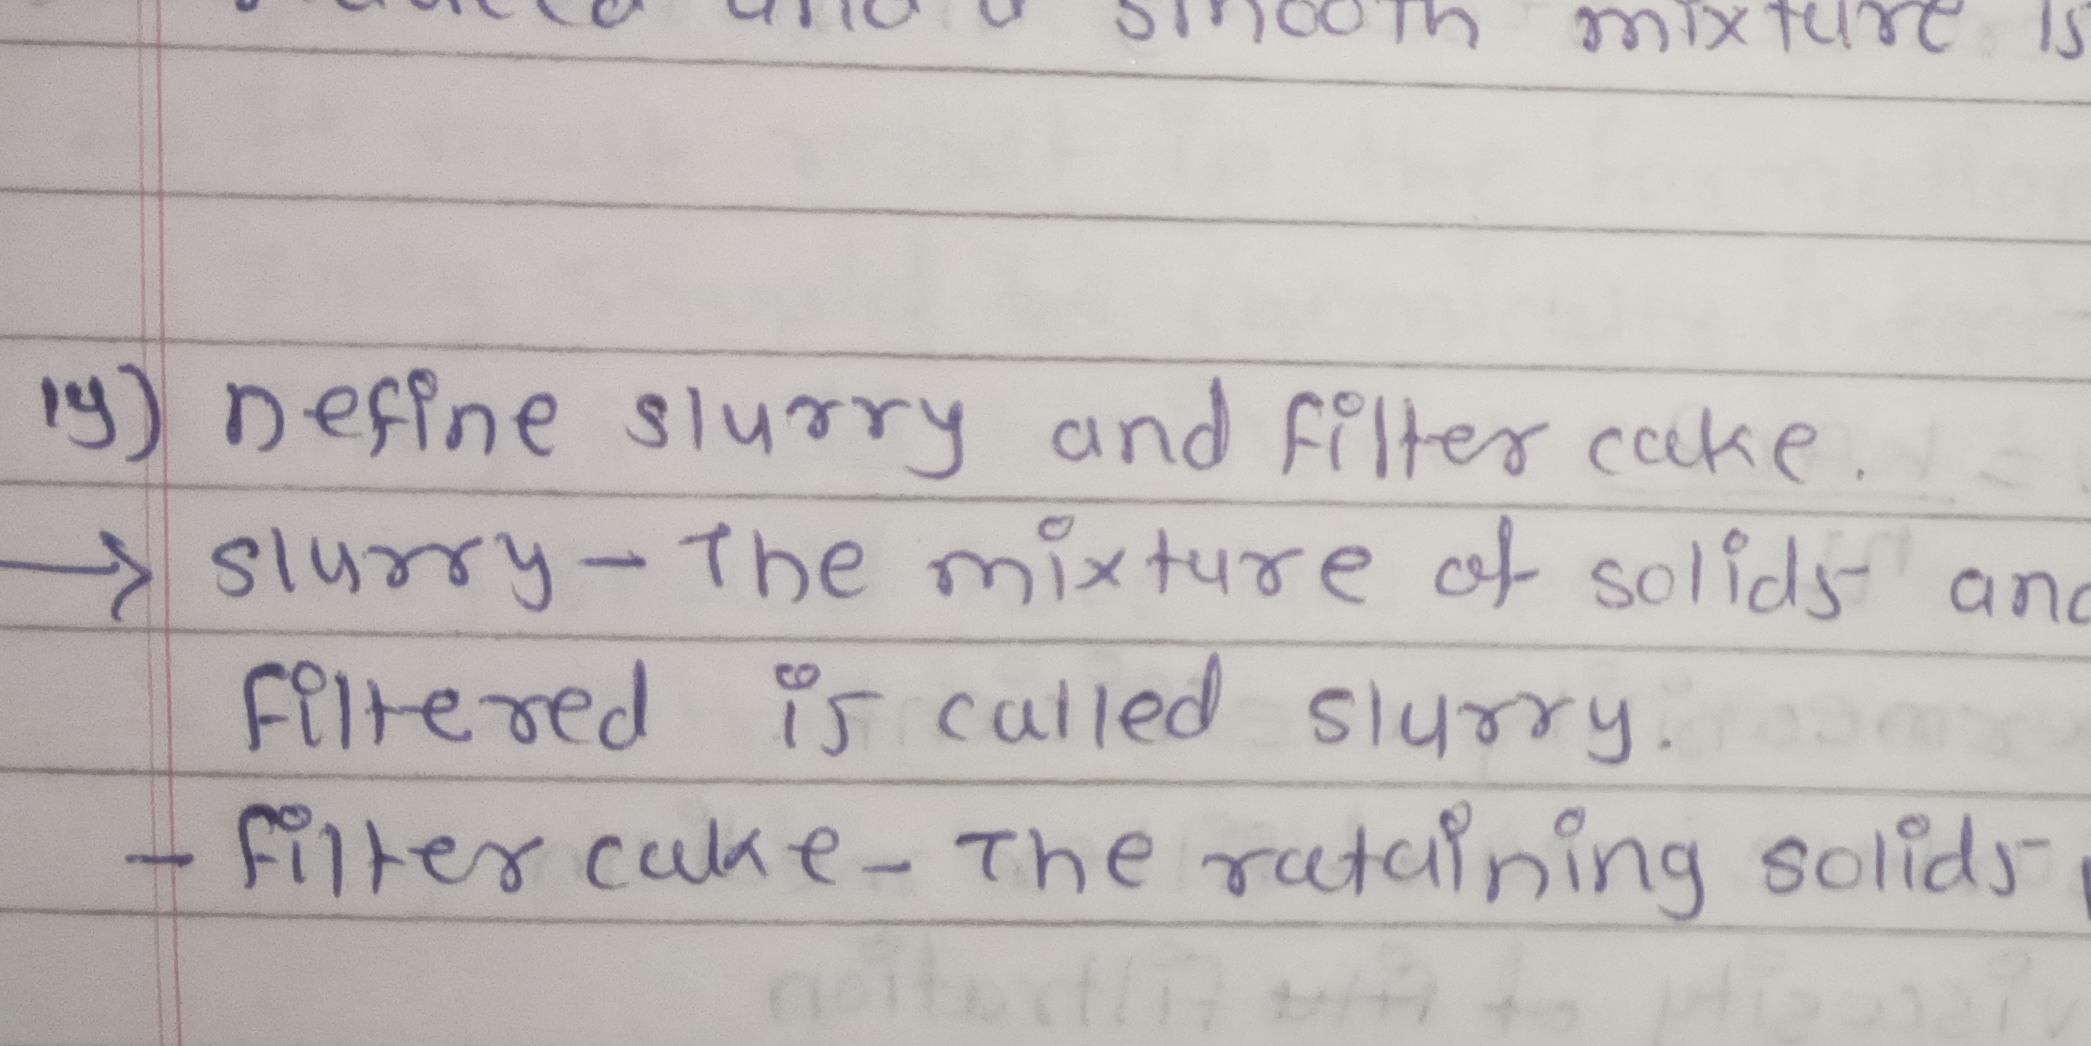 smooth mixture is
14) Define slurry and filter cake.
→ slurry - The mixture of solids and
filtered is called slurry.
- filter cake - The rataining solids